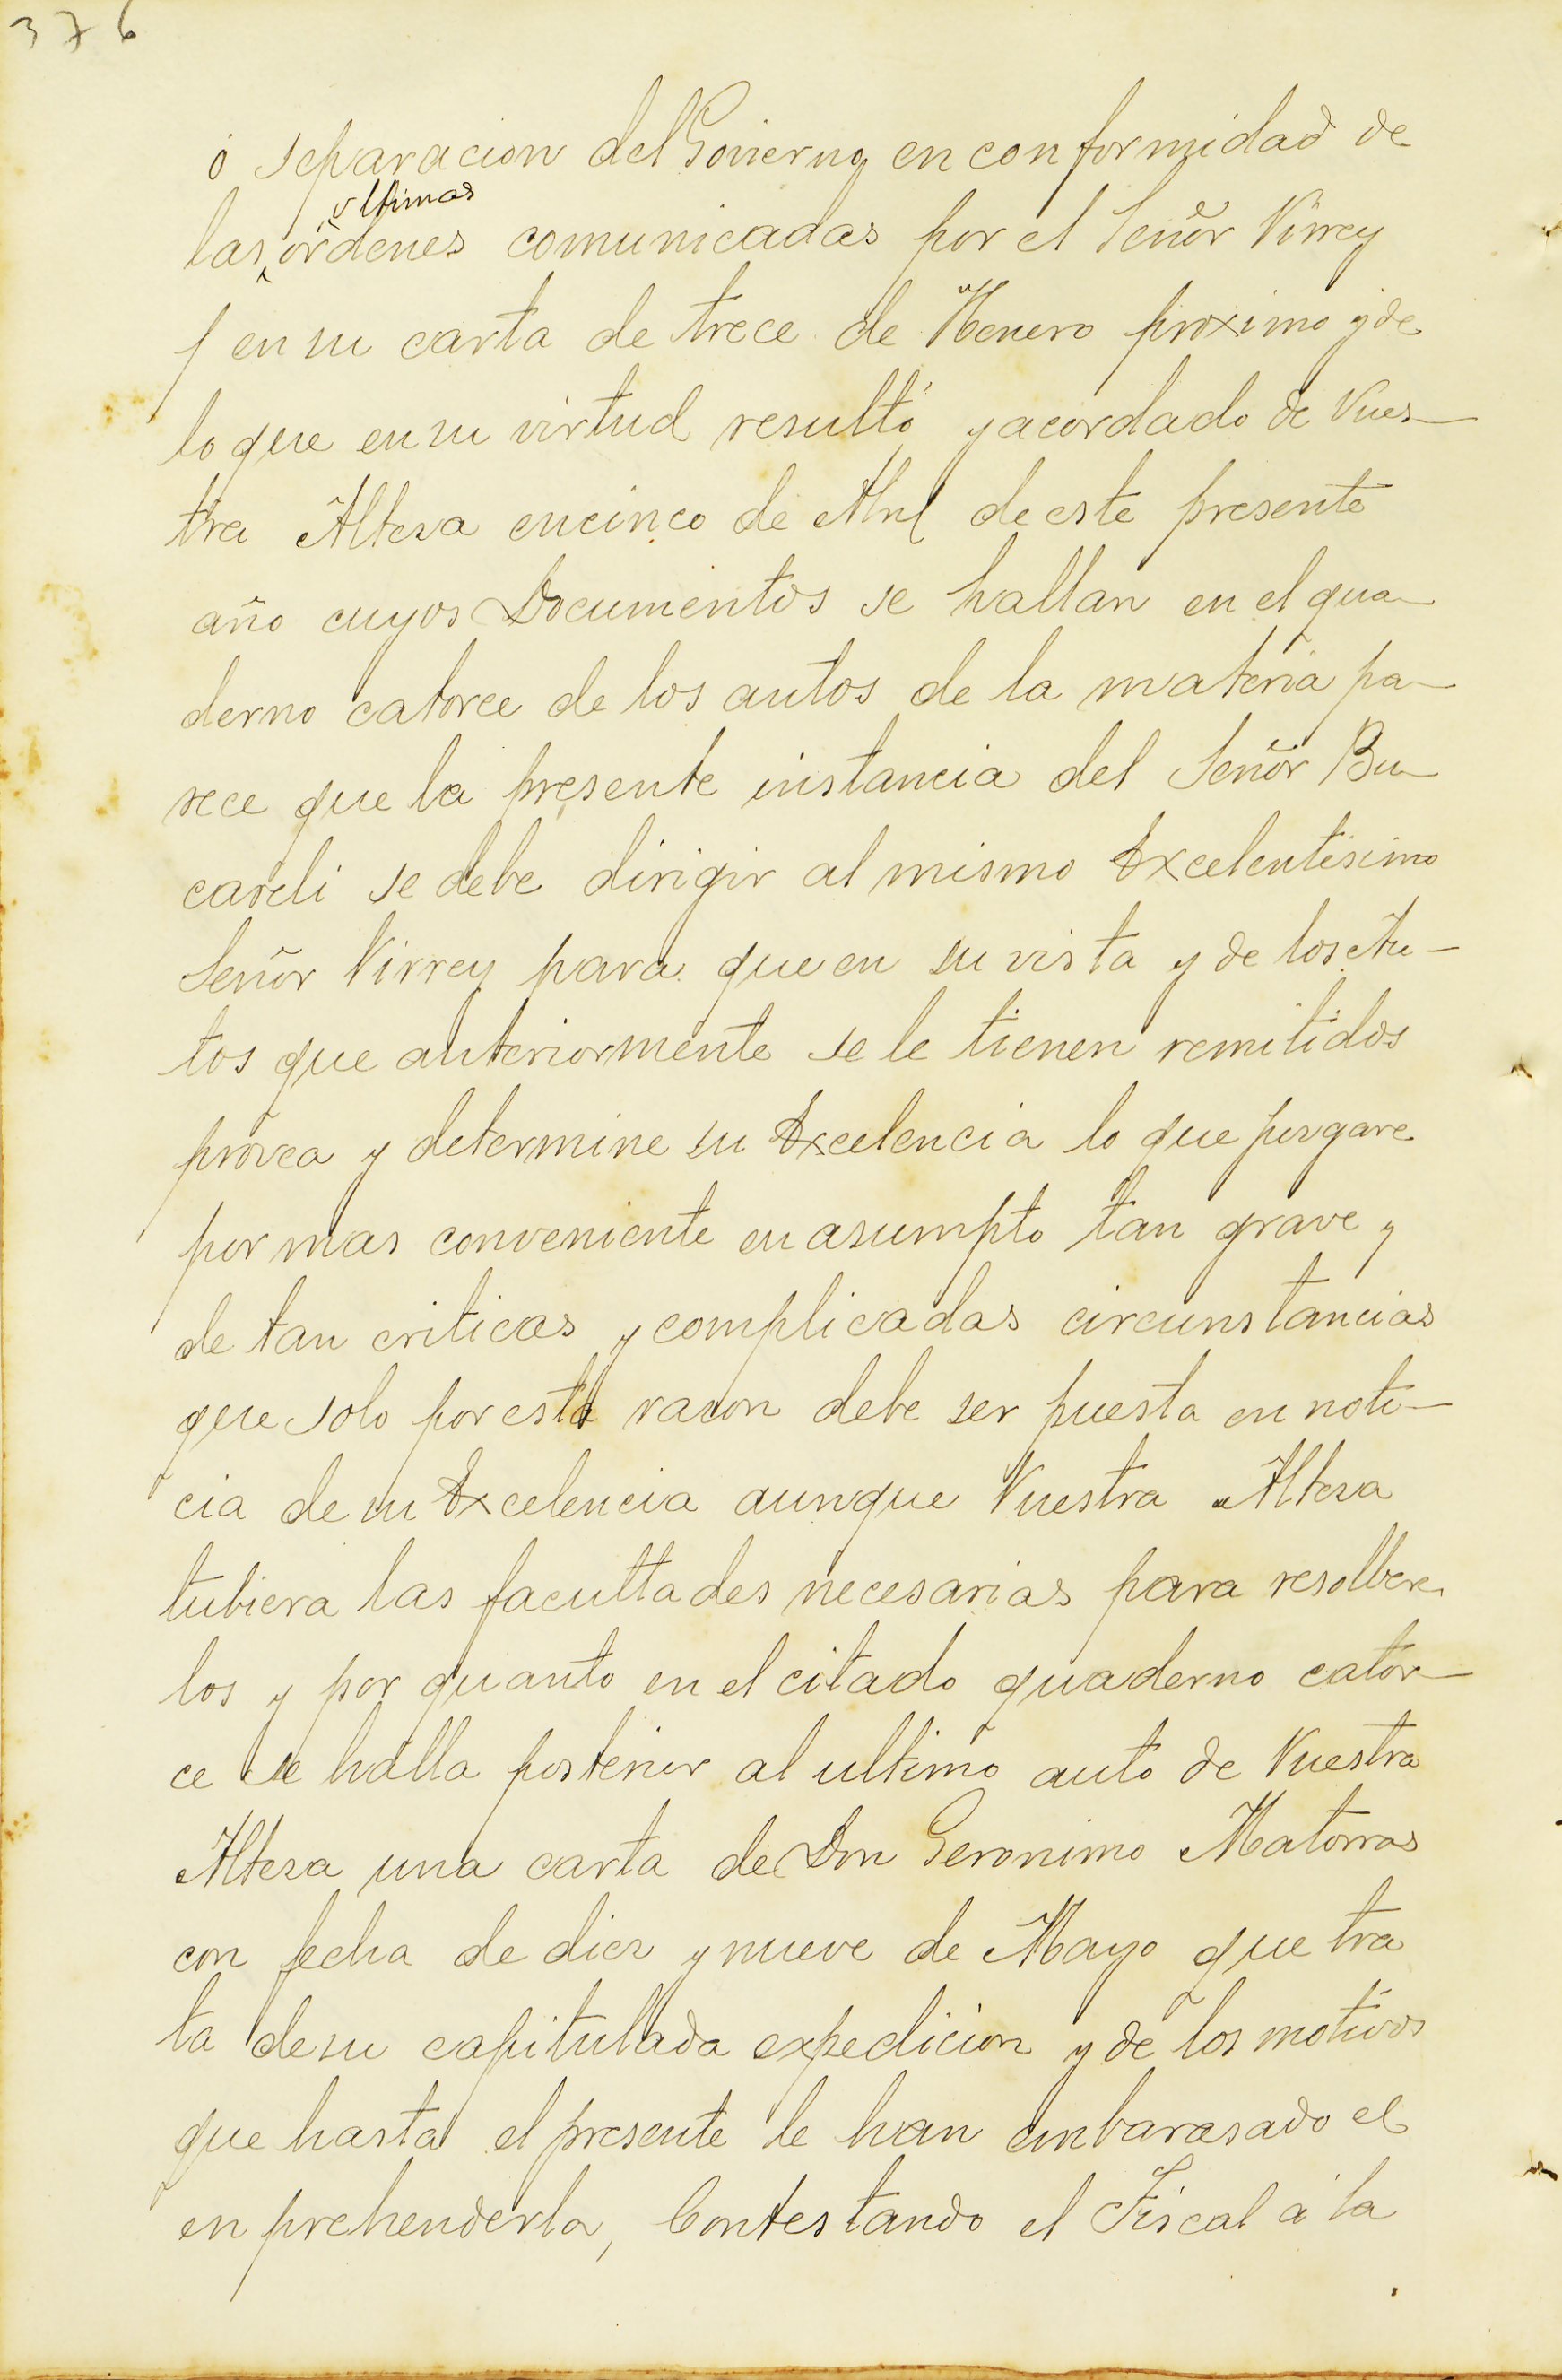 376
ó separacion del Govierno, en conformidad de
ultimas
las ordenes comunicadas por el Señor Virrey
en su carta de trece de Henero proximo y de
lo que en su virtud resultó y acordado de Vues-
tra Altesa en cinco de Abril de este presente
año cuyos Documentos se hallan en el qua-
derno catorce de los autos de la materia pa-
rece que la presente instancia del Señor Bu-
careli se debe dirigir al mismo Excelentisimo
Señor Virrey para que en su vista y de los Au-
tos que anteriormente se le tienen remitidos
provea y determine su Excelencia lo que jusgare
por mas conveniente en asumpto tan grave y
de tan criticas y complicadas circunstancias
que solo por esta rason debe ser puesta en noti-
cia de su Excelencia aunque Vuestra Altesa
tubiera las facultades necesarias para resolber
los y por quanto en el citado quaderno cator-
ce se halla posterior al ultimo auto de Vuestra
Altesa una carta de Don Geronimo Matorras
con fecha de dies y nueve de Mayo que tra
ta de su capitulada expedicion y de los motivos
que hasta el presente le han enbarasado el
en prehenderla, Contestando el Fiscal a la